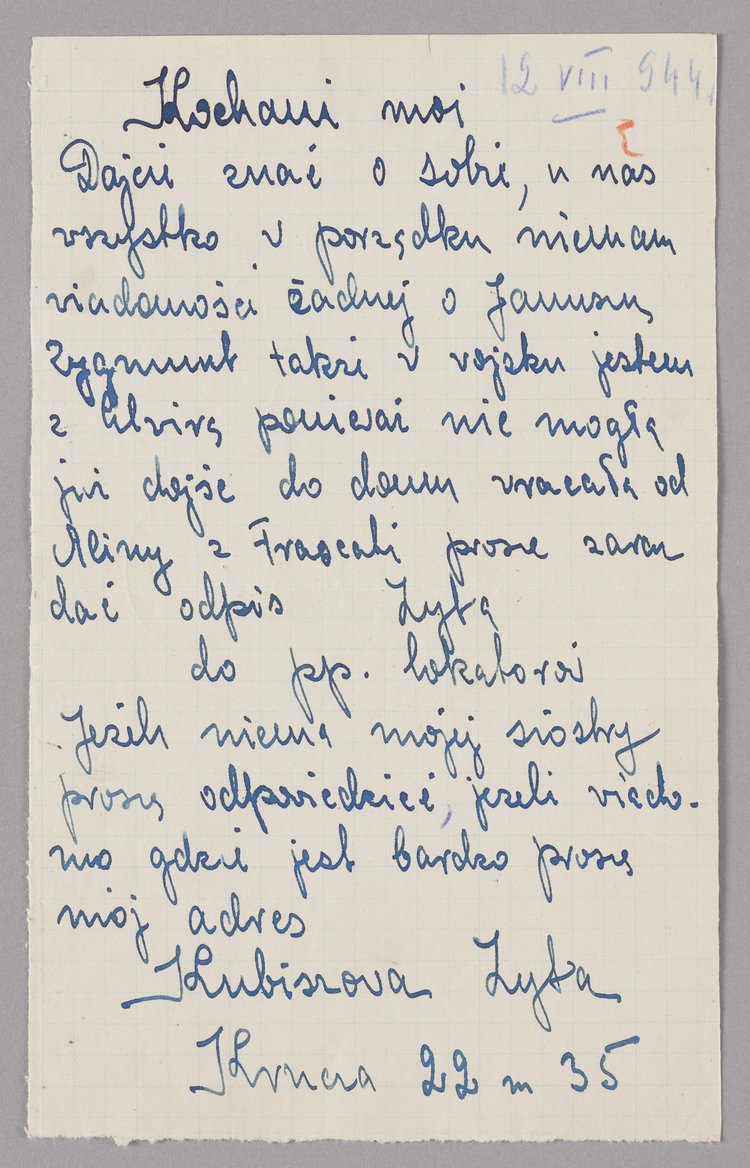 12 VIII 944.
Kochani moi
Dajcie znać o sobie, u nas
wszystko w porządku niemam
wiadomości żadnej o Januszu,
Zygmunt także w wojsku jestem
z Elvirą ponieważ nie mogłą
już dojść do domu wracała od
Aliny z Frascati proszę zaraz
dać odpis Zyta
do pp. lokatorów
Jeżeli niema mojej siostry
proszę odpowiedzieć, jeżeli wiado-
mo gdzie jest bardzo proszę
mój adres
Kubiszowa Zyta
Krucza 22 m 35